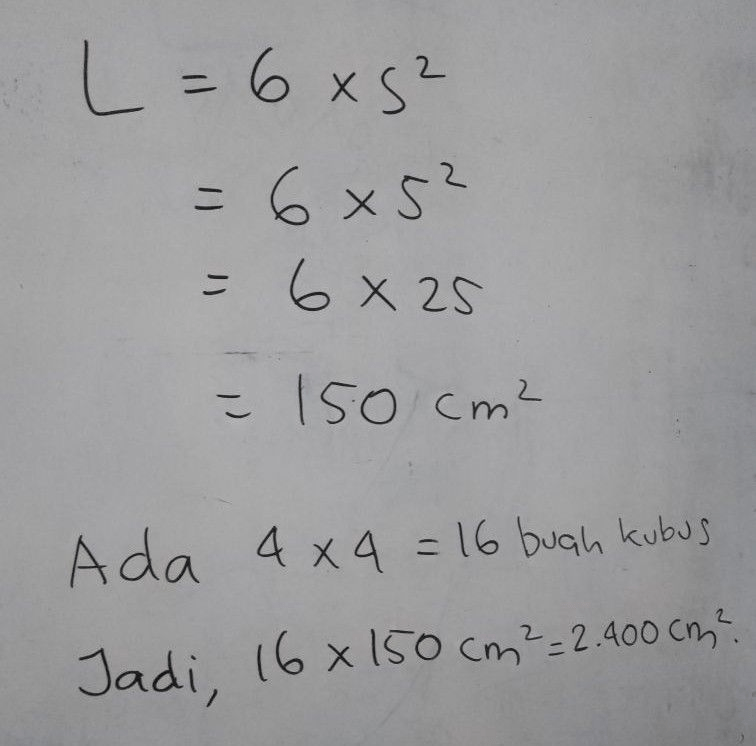 L = 6 × s²
= 6 × 5²
= 6 × 25
= 150 cm²
Ada 4 × 4 = 16 buah kubus
Jadi, 16 × 150 cm² = 2.400 cm².